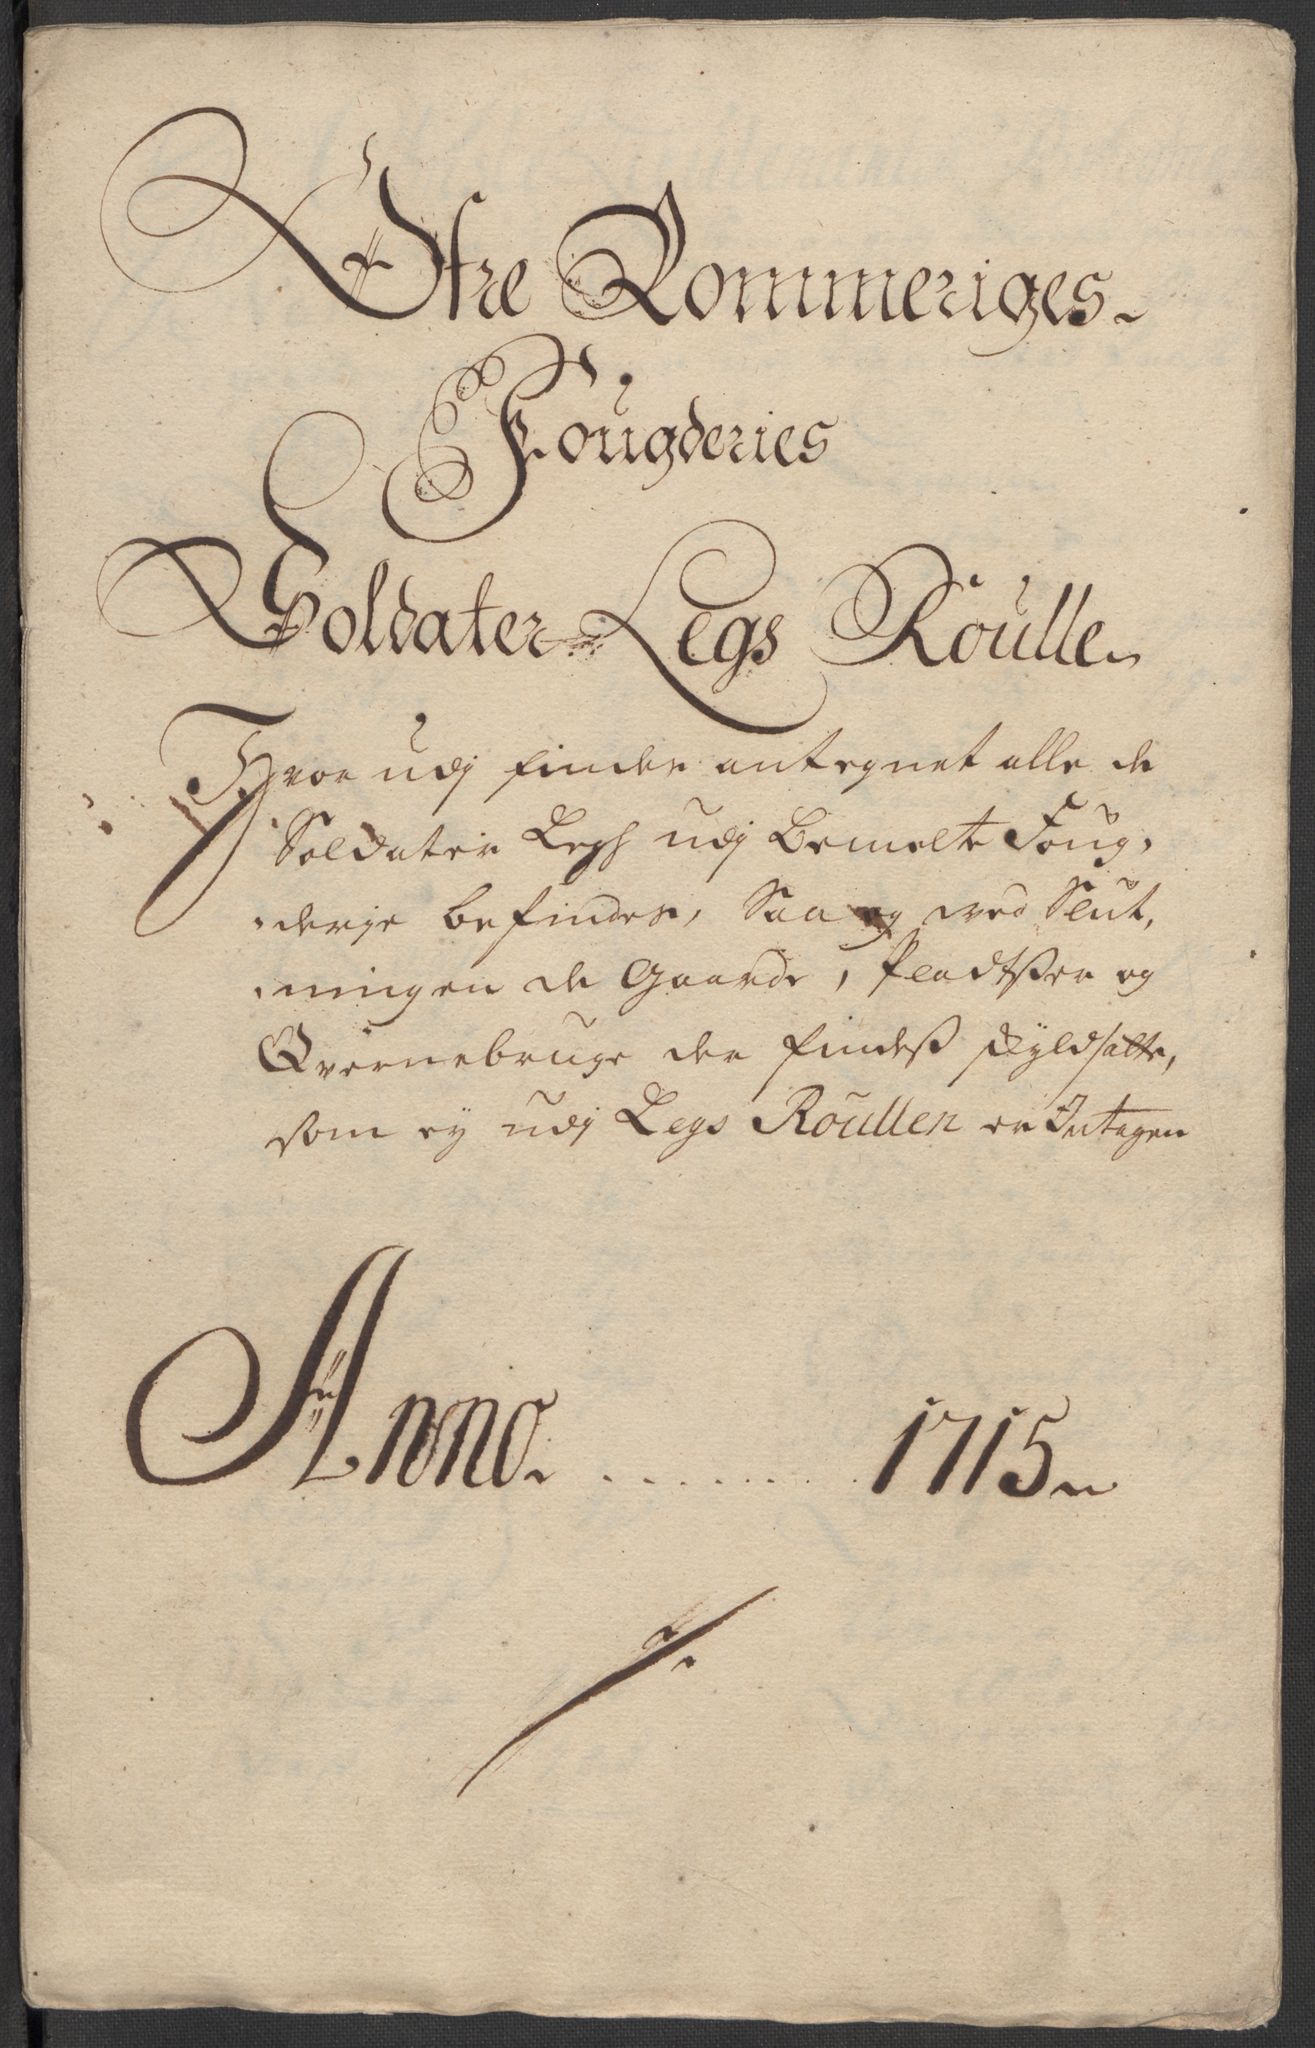 Øfre Rommeriges
Fougderies
Soldater Legs Roulle
Hvor udj findes antegnet alle de
Soldater Legh udj Bemelte Foug,
derje befindes, Saa og ved Slut,
ningen de Gaarde, Pladtzer og
Qvernebruge der findeß skyldsatte,
som ey udj Legs Roullen er Intagen
Anno . . . . . . . 1715